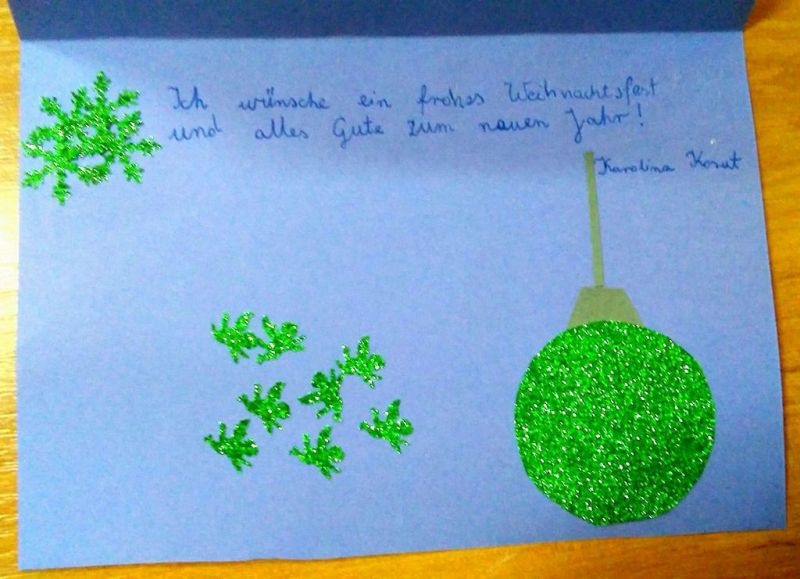 Ich wünsche ein frohes Weihnachtsfest
und alles Gute zum neuen Jahr!
Karolina Kosut